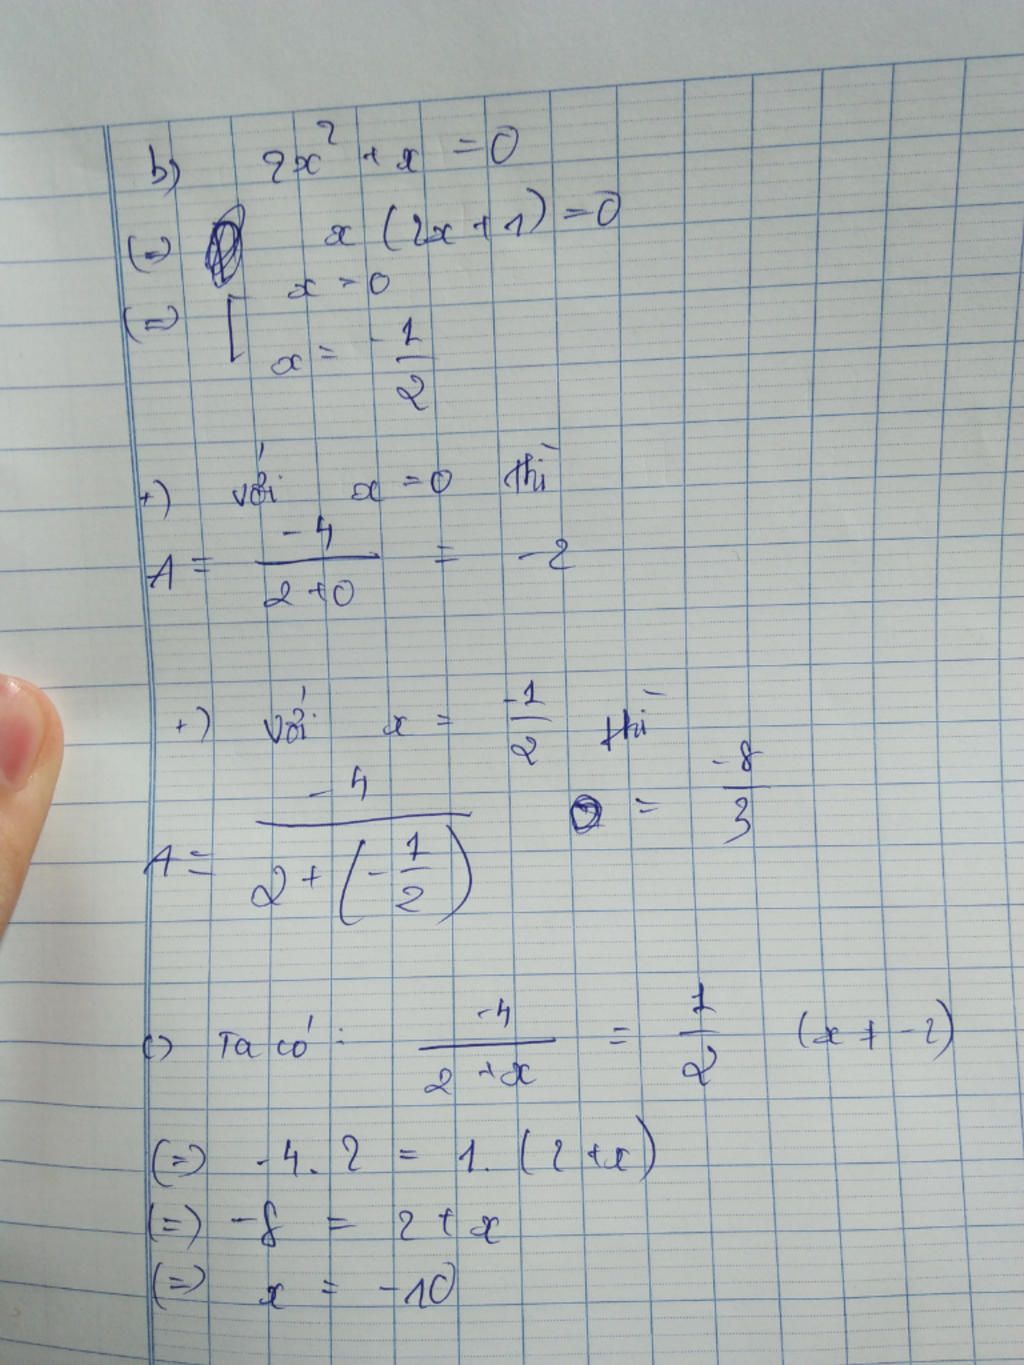 b) 2x² + x = 0
(=) x (2x + 1) = 0
(=) [ x = 0
x = -1/2
+) với x = 0 thì
A = -4/(2+0) = -2
+) với x = -1/2 thì
A = -4/(2 + (-1/2)) = -8/3
c) Ta có: -4/(2+x) = 1/2 (x ≠ -2)
(=) -4. 2 = 1. (2+x)
(=) -8 = 2 + x
(=) x = -10